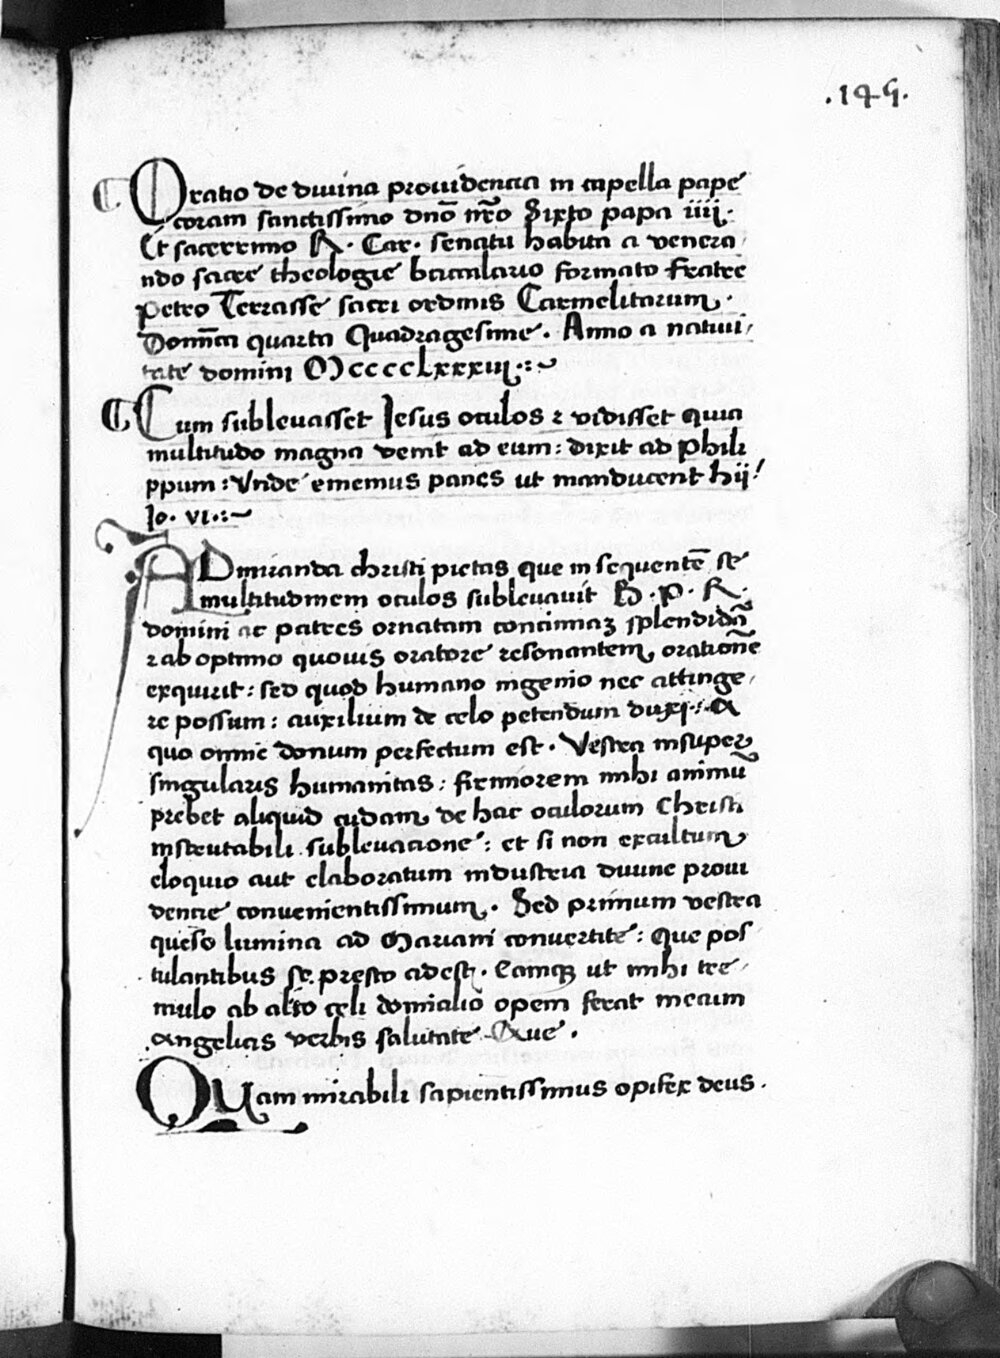 .145.
Oratio de diuina prouidencia in capella pape
coram sanctissimo dnō nrō Sixto papa iiij.
Et sacerrimo R. Car. senatu habita a venera
ndo sacre theologie bacalario formato fratre
petro Terrasse sacri ordinis Carmelitarum.
Domīca quarta Quadragesime. Anno a natiui
tate domini MccccLxxxiij.
Cum subleuasset Iesus oculos ⁊ vidisset quia
multitudo magna venit ad eum: dixit ad Phili
ppum: Vnde ememus panes ut manducent hij!
Io. vi.
ADmiranda christi pietas que in sequentē se
multitudinem oculos subleuauit R. P. R.
domini ac patres ornatam concinnaȝ splendidā
⁊ ab optimo quouis oratore resonantem orationē
exquirit: sed quod humano ingenio nec attinge
re possum: auxilium de celo petendum duxi: A
quo omne donum perfectum est. Vestra insuper
singularis humanitas: firmiorem mihi animū
prebet aliquid cudam de hac oculorum Christi
inscrutabili subleuacione: et si non excultum
eloquio aut elaboratum industria diuine proui
dencie conuenientissimum. Sed primum vestra
queso lumina ad Mariam conuertite: Que pos
tulantibus se presto adest. Eamqȝ ut mihi tre
mulo ab alto celi domicilio opem ferat mecum
angelicis verbis salutate Aue.
QUam mirabili sapientissimus opifex deus.